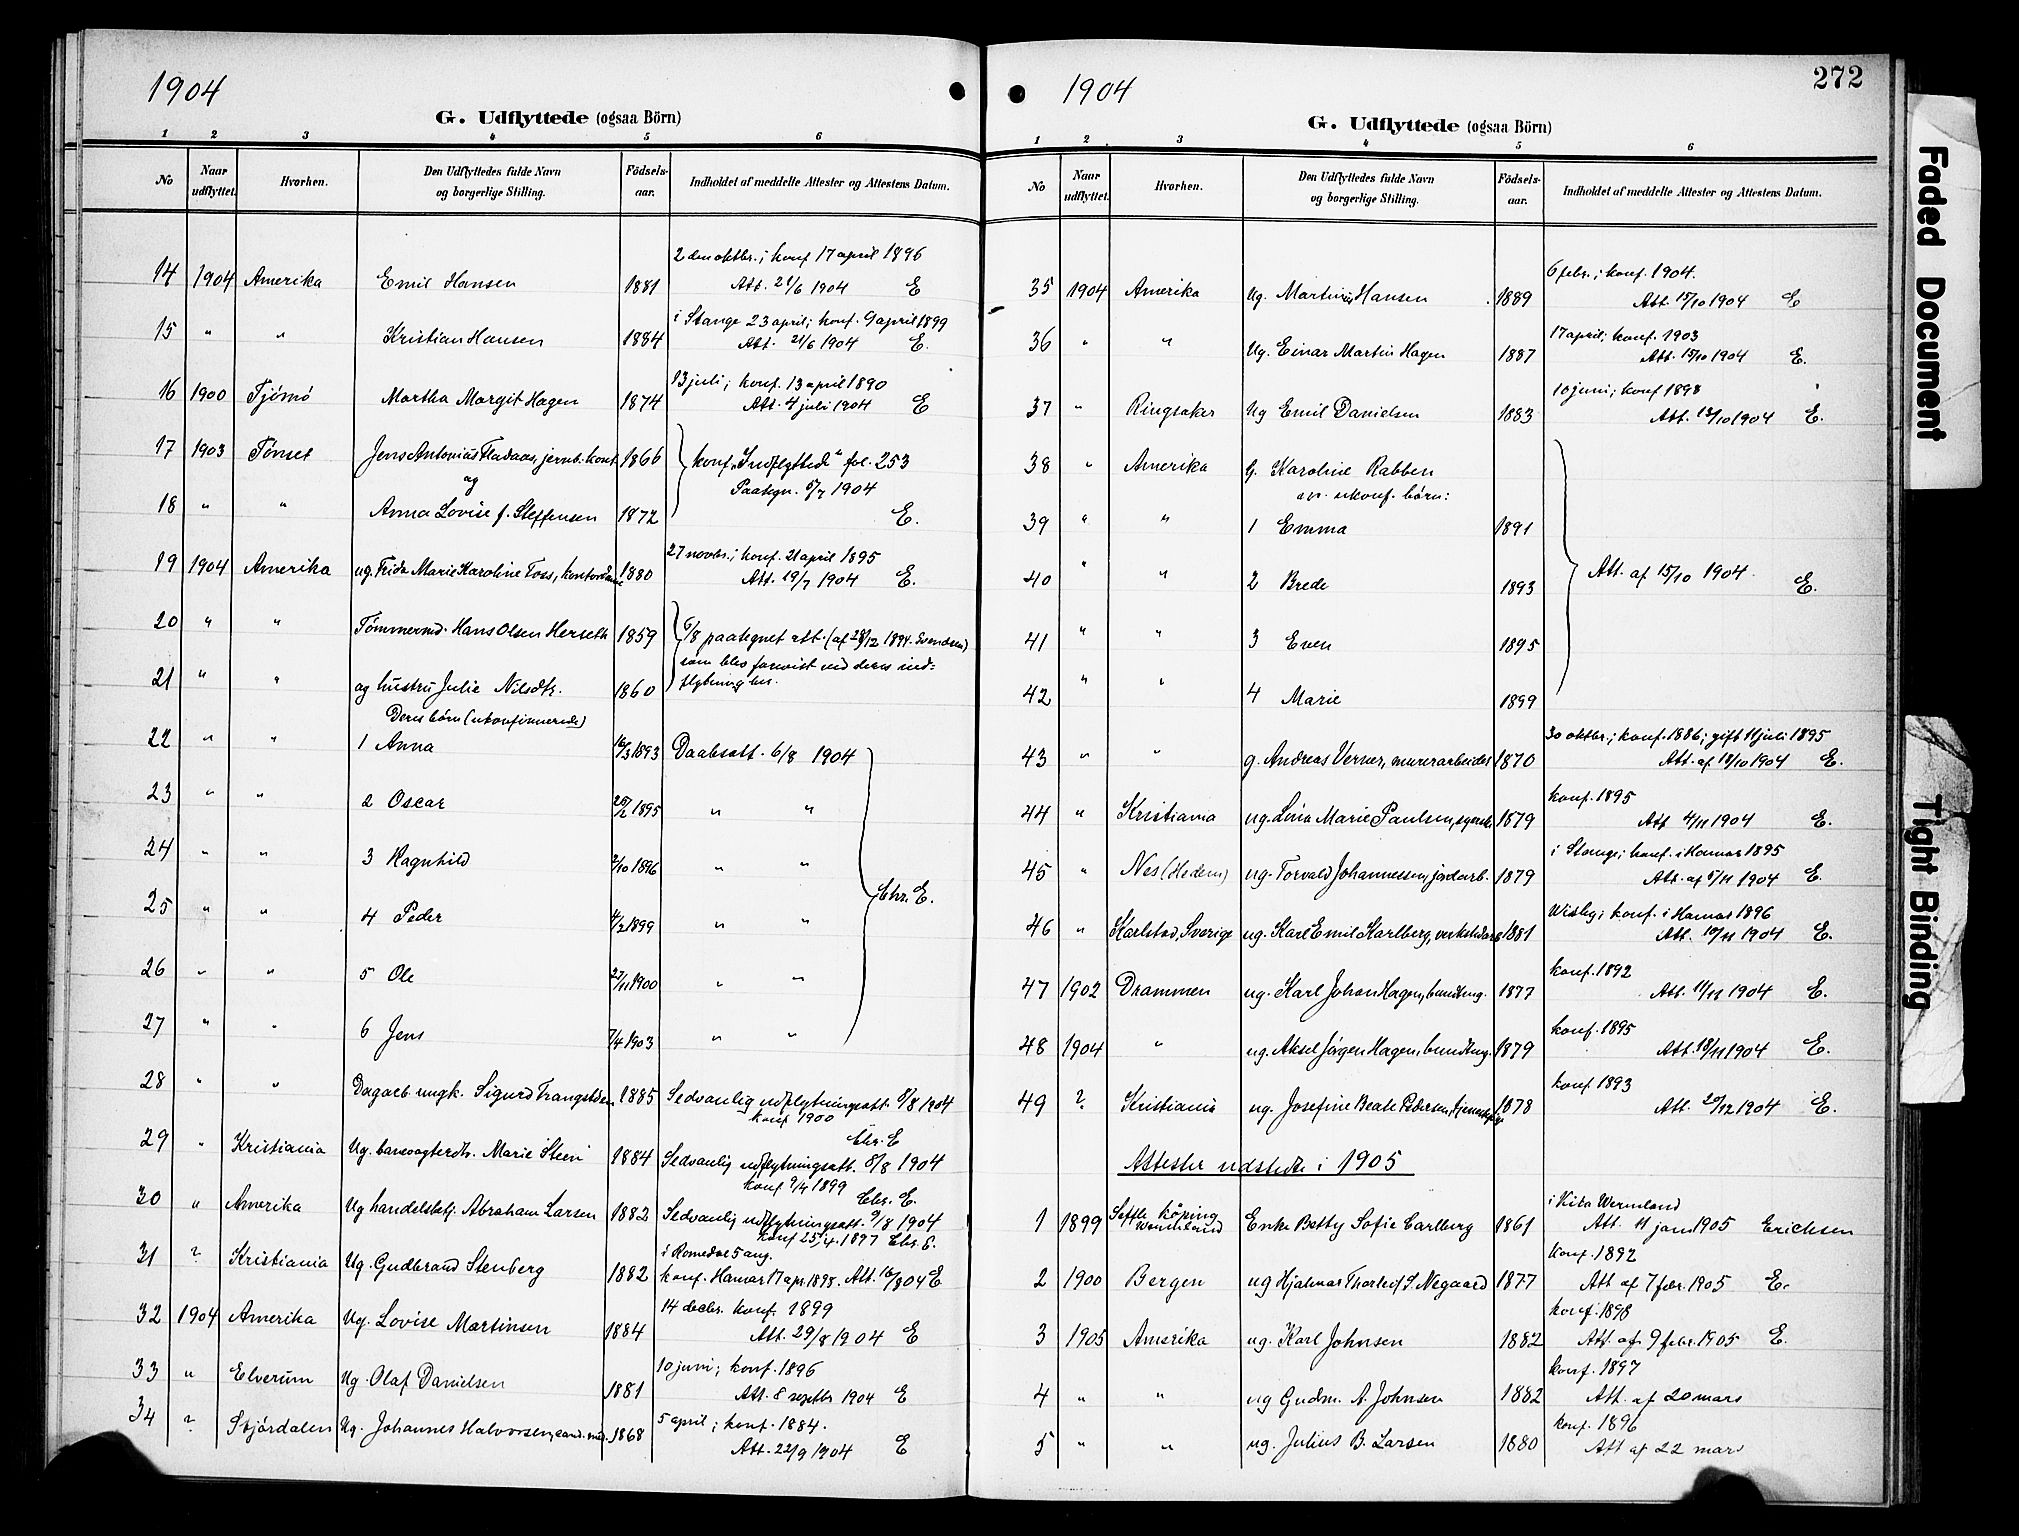 1904
G. Udflyttede (ogsaa Börn)
1 2 3 4 5 6
No Naar udflyttet. Hvorhen. Den Udflyttedes fulde Navn og borgerlige Stilling. Födsels-aar. Indholdet af meddelte Attester og Attestens Datum.
2den oktbr.; konf 17 april 1896
14 1904 Amerika Emil Hansen 1881 Att. 21/6 1904 E
i Stange 23 april; konf. 9 april 1899
15 " " Kristian Hansen 1884 Att. 21/6 1904 E.
13 juli; konf. 13 april 1890
16 1900 Tjömö Martha Margit Hagen 1874 Att. 4 juli 1904 E
17 1903 Tönset Jens Antonius Fladaas, jernb. kont 1866 konf. "Indflyttede" fol. 253
og Paategn. 6/7 1904
18 " " Anna Lovise f. Steffensen 1872 E.
27 novbr.; konf. 21 april 1895
19 1904 Amerika ug. Frida Marie Karoline Foss, kontordame 1880 Att. 19/7 1904 E.
20 " " Tömmermd. Hans Olsen Herseth 1859 6/8 paategnet att. (af 28/12 1894. Svendsen)
som blev forevist ved deres ind=
21 " " og hustru Julie Nilsdtr. 1860 flytning her.
Deres börn (ukonfirmerede)
22 " " 1 Anna 16/3 1893 Daabsatt. 6/8 1904
23 " " 2 Oscar 25/2 1895 " "
24 " " 3 Ragnhild 2/10 1896 " "
Chr. E.
25 " " 4 Peder 4/2 1899 " "
26 " " 5 Ole 27/11 1900 " "
27 " " 6 Jens 7/4 1903 " "
28 " " Dagarb. ungk. Sigurd Trangsluen 1885 Sedvanlig udflytningsatt. 8/8 1904
konf 1900
Chr. E
29 " Kristiania Ug. banevogterdtr. Marie Steen 1884 Sedvanlig udflytningsatt. 8/8 1904
konf 9/4 1899 Chr. E.
30 " Amerika Ug handelsbetj. Abraham Larsen 1882 Sedvanlig udflytningsatt. 9/8 1904
konf 25/4. 1897 Chr. E.
i Romedal 5 aug.
31 ? Kristiania Ug. Gudbrand Stenberg 1882 konf. Hamar 17 apr. 1898. Att. 16/8 04 E
14 decbr. konf. 1899
32 1904 Amerika Ug. Lovise Martinsen 1884 Att. 29/8 1904 E
10 juni; konf. 1896
33 " Elverum Ug. Olaf Danielsen 1881 Att. 8 septbr 1904 E
5 april; konf. 1884.
34 ? Stjördalen Ug. Johannes Halvorsen, cand. med. 1868 Att. 22/9 1904 E
1904
272
G. Udflyttede (ogsaa Börn)
1 2 3 4 5 6
No Naar udflyttet. Hvorhen. Den Udflyttedes fulde Navn og borgerlige Stilling. Födsels-aar. Indholdet af meddelte Attester og Attestens Datum.
6 febr.; konf. 1904.
35 1904 Amerika Ug. Martinus Hansen 1889 Att. 15/10 1904 E
17 april; konf. 1903
36 " " Ug. Einar Martin Hagen 1887 Att. 15/10 1904 E.
10 juni; konf 1898
37 " Ringsaker Ug Emil Danielsen 1883 Att. 13/10 1904 E.
38 " Amerika G. Karoline Rabben
av. ukonf. börn:
39 " " 1 Emma 1891
40 " " 2 Brede 1893 Att. af 15/10 1904. E.
41 " " 3 Even 1895
42 " " 4 Marie 1899
30 oktbr.; konf. 1886; gift 11 juli 1895
43 " " g. Andreas Verner, murerarbeider 1870 Att. af 18/10 1904 E.
konf. 1895
44 " Kristiania ug. Lina Marie Paulsen, syerske 1879 Att 4/11 1904 E.
i Stange; konf. i Hamar 1895
45 " Nes (Hedem) ug. Torvald Johannessen, jordarb. 1879 Att. af 5/11 1904 E.
konf. i Hamar 1896
46 " Karlstad, Sverige ug. Karl Emil Karlberg, 1881 Att. 10/11 1904 E.
konf. 1892
47 1902 Drammen ug. Karl Johan Hagen, bundtmg. 1877 Att. 11/11 1904 E.
konf. 1895
48 1904 " ug. Aksel Jörgen Hagen, bundtmg. 1879 Att. 18/11 1904 E.
konf 1893
49 ? Kristiania ug. Josefine Beate Pedersen, tjenestepige 1878 Att. 20/12 1904 E.
Attester udstedte i 1905
i Kila Wermland
1 1899 Seffle köping Wermland Enke Betty Sofie Carlberg 1861 Att. 11 jan 1905 Erichsen
konf. 1892
2 1900 Bergen ug Hjalmar Thorleif S. Negaard 1877 Att af 7 febr. 1905 E.
konf. 1898
3 1905 Amerika ug. Karl Johnsen 1882 Att. af 9 febr. 1905 E.
konf. 1897
4 " " ug Gudm. A. Johnsen 1882 Att. af 20 mars
konf. 1896
5 " " ug. Julius B. Larsen 1880 Att af 22 mars
Faded Document
Tight Binding